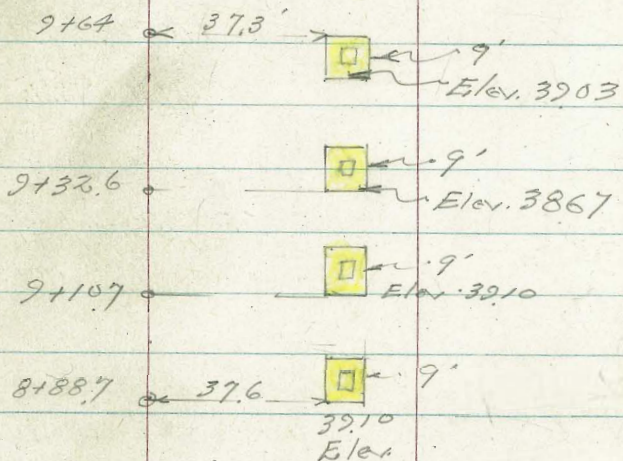 9+64 37.3' 9'
Elev. 39.03
9+32.6 9'
Elev. 38.67
9+10.7 9'
Elev. 39.10
8+88.7 37.6 9'
39.10
Elev.